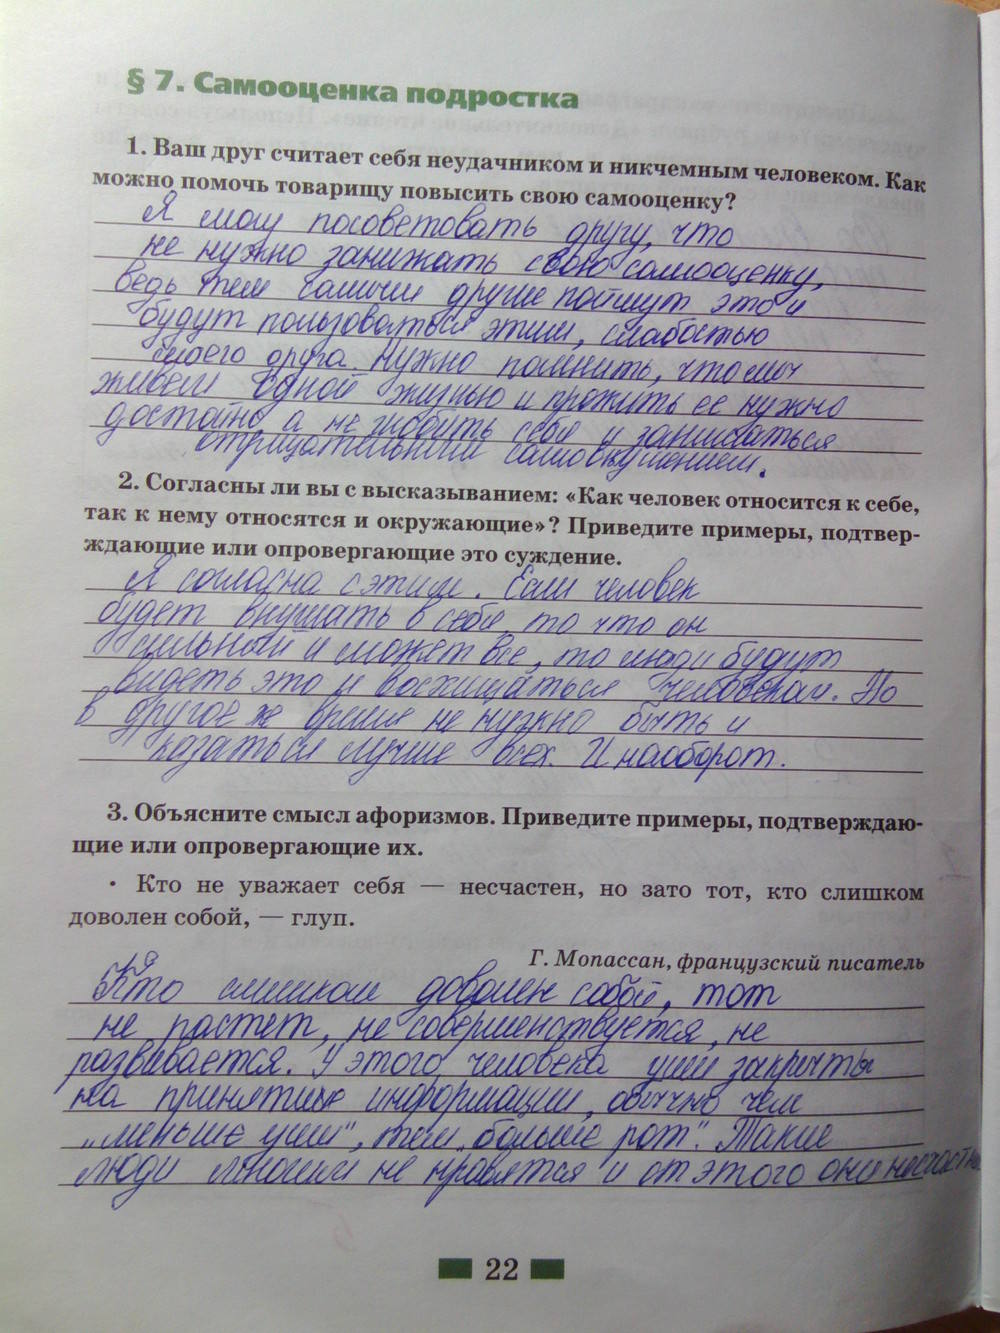 § 7. Самооценка подростка
1. Ваш друг считает себя неудачником и никчемным человеком. Как
можно помочь товарищу повысить свою самооценку?
Я могу посоветовать другу, что
не нужно занижать свою самооценку,
ведь тем самым другие поймут это и
будут пользоваться этим, слабостью
моего друга. Нужно помнить, что мы
живем одной жизнью и прожить ее нужно
достойно, а не гнобить себя и заниматься
отрицательным самовнушением.
2. Согласны ли вы с высказыванием: «Как человек относится к себе,
так к нему относятся и окружающие»? Приведите примеры, подтвер-
ждающие или опровергающие это суждение.
Я согласна с этим. Если человек
будет внушать в себя то что он
сильный и может все, то люди будут
видеть это и восхищаться человеком. Но
в другое же время не нужно быть и
казаться лучше всех. И наоборот.
3. Объясните смысл афоризмов. Приведите примеры, подтверждаю-
щие или опровергающие их.
• Кто не уважает себя — несчастен, но зато тот, кто слишком
доволен собой, — глуп.
Г. Мопассан, французский писатель
Кто слишком доволен собой, тот
не растет, не совершенствуется, не
развивается. У этого человека уши закрыты
на принятие информации, обычно чем
„меньше уши", тем „больше рот". Такие
люди многим не нравятся и от этого они несчастны
22